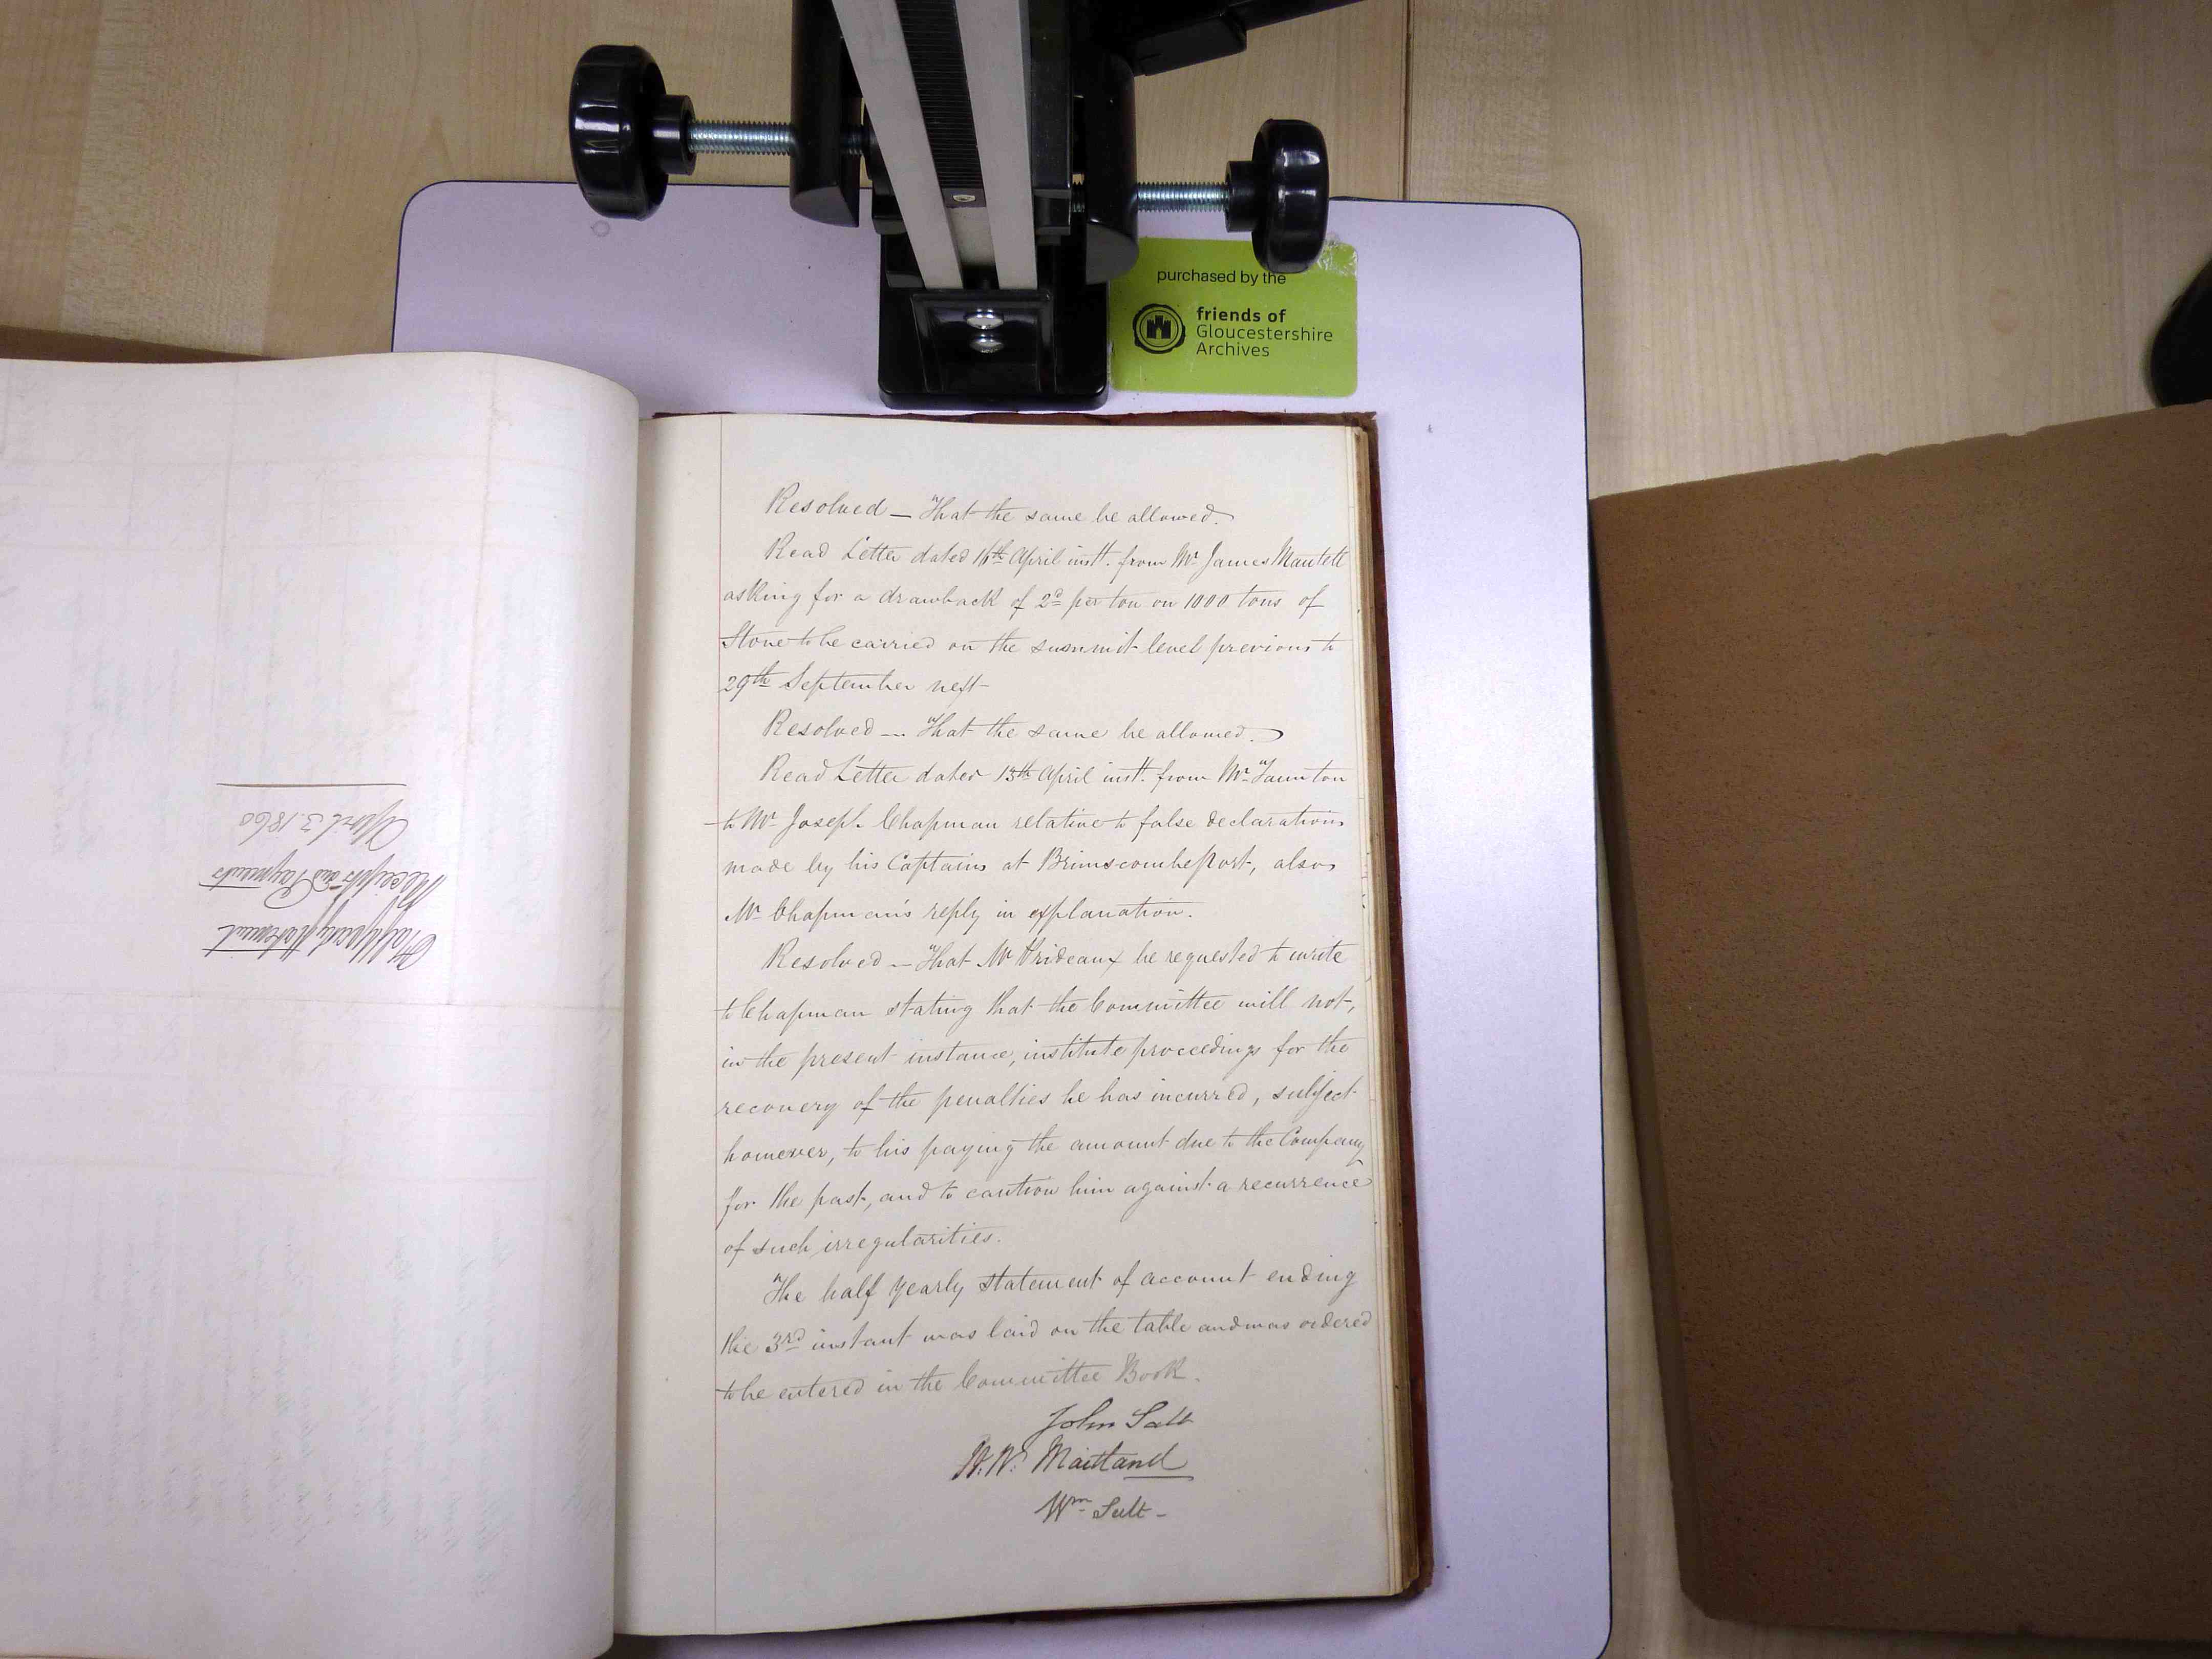 purchased by the
friends of
Gloucestershire
Archives
Half yearly Statement
Receipts and Payments
April 3. 1860
Resolved — That the same be allowed.
Read Letter dated 16th April instt. from Mr James Mantell
asking for a drawback of 2d per ton on 1000 tons of
Stone to be carried on the summit level previous to
29th September next
Resolved — That the same be allowed.
Read Letter dated 13th April instt. from Mr Taunton
to Mr Joseph Chapman relative to false declarations
made by his Captains at Brimscombe Port, also
Mr Chapman's reply in explanation.
Resolved — That Mr Prideaux be requested to write
to Chapman stating that the Committee will not,
in the present instance, institute proceedings for the
recovery of the penalties he has incurred, subject
however, to his paying the amount due to the Company
for the past, and to caution him against a recurrence
of such irregularities.
The half yearly statement of account ending
the 3rd instant was laid on the table and was ordered
to be entered in the Committee Book.
John Salt
Maitland
Wm Salt -